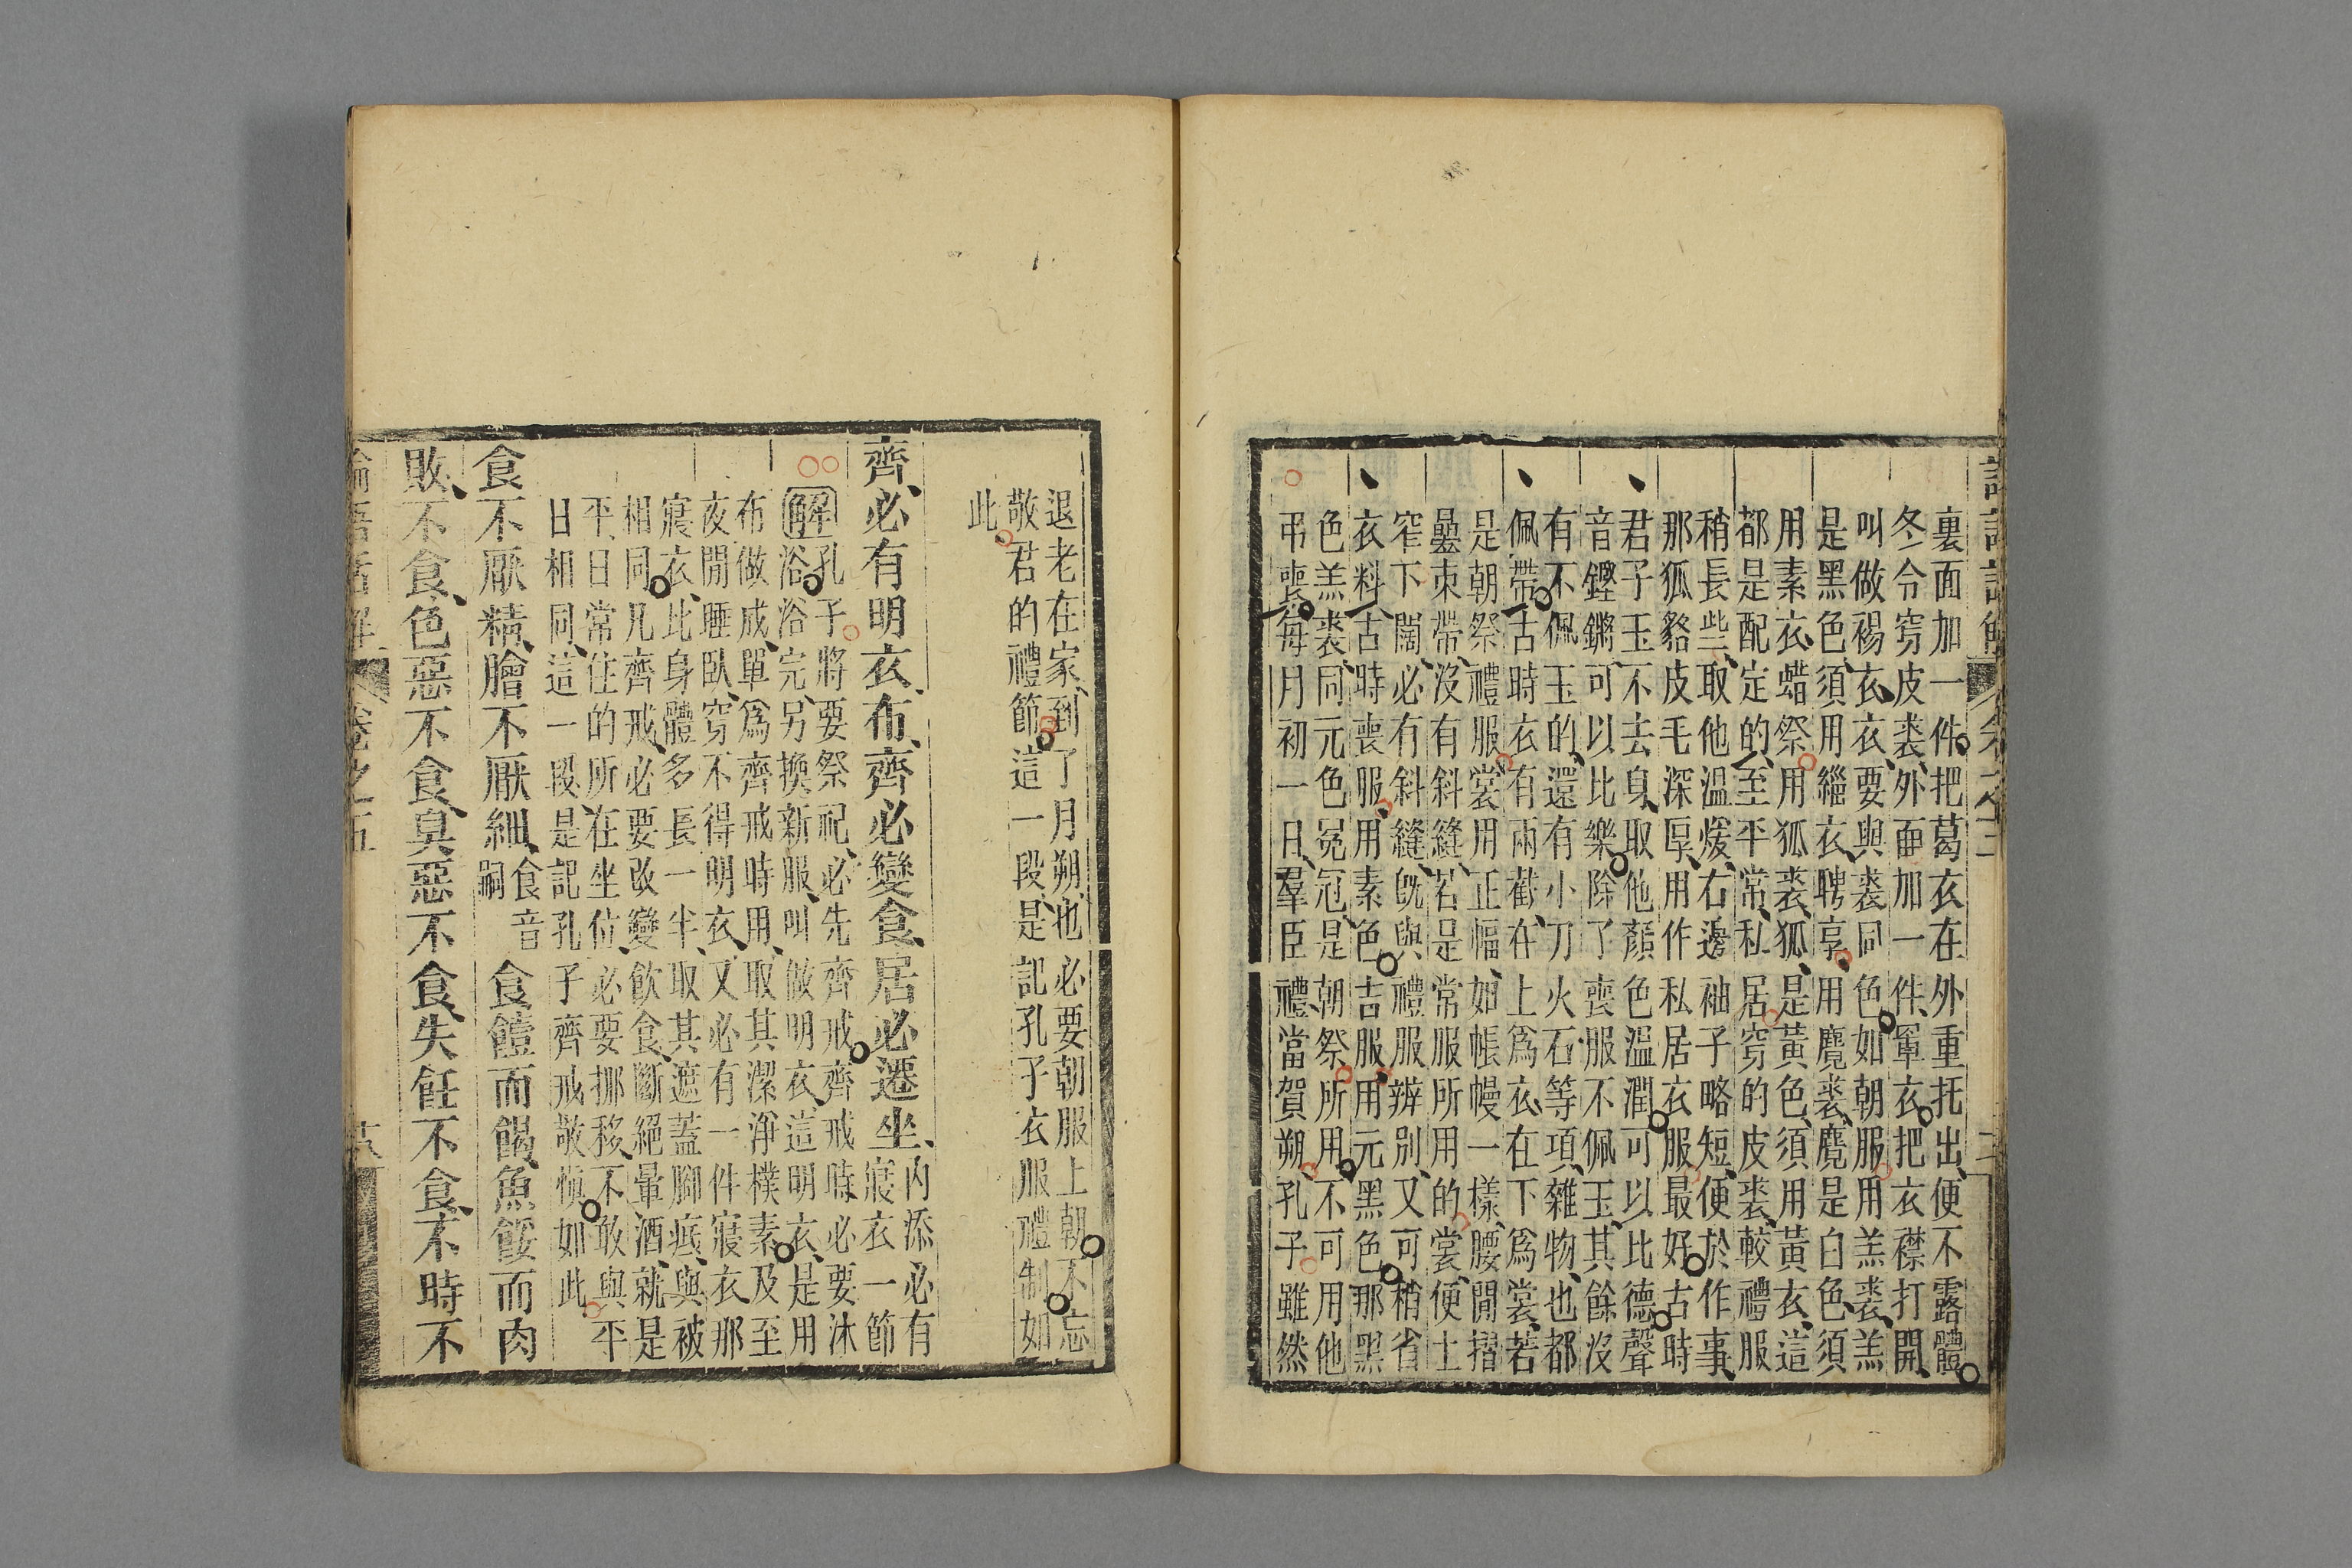 裏面加一件把葛衣在外重抚出便不露體
冬令穷皮裘外面加一件罩衣把衣襟打開
叫做裼衣衣要與裘同色如朝服用羔裘羔
是黑色須用緇衣聘享用麑裘麑是白色須
用素衣蜡祭用狐裘狐是黃色須用黃衣這
都是配定的至平常私居穷的皮裘較禮服
稍長些取他溫煖右邊袖子略短便於作事
那狐貉皮毛深厚用作私居衣服最好古時
君子玉不去身取他顏色溫潤可以比德聲
音鏗鏘可以比樂除了喪服不佩玉其餘沒
有不佩玉的還有小刀火石等項雜物也都
佩帶古時衣有兩截在上爲衣在下爲裳若
是朝祭禮服裳用正幅如帳幔一樣腰閒摺
疊束帶沒有斜縫若是常服所用的裳便上
窄下闊必有斜縫旣與禮服辨別又可稍省
衣料古時喪服用素色吉服用元黑色那黑
色羔裘同元色冕冠是朝祭所用不可用他
弔喪每月初一日羣臣禮當賀朔孔子雖然
退老在家到了月朔也必要朝服上朝不忘
敬君的禮節這一段是記孔子衣服禮制如
此
齊必有明衣布齊必變食居必遷坐內添必有寢衣一節
解孔子將要祭祀必先齊戒齊戒時必要沐
浴浴完另換新服叫做明衣這明衣是用
布做成單爲齊戒時用取其潔淨樸素及至
夜閒睡臥穷不得明衣又必有一件寢衣那
寢衣比身體多長一半取其遮蓋腳底與被
相同凡齊戒必要改變飲食斷絕暈酒就是
平日常住的所在坐位必要挪移不敢與平
日相同這一段是記孔子齊戒敬愼如此
食不厭精膾不厭細食音嗣食饐而餲魚餒而肉
敗不食色惡不食臭惡不食失飪不食不時不
論語話解 卷之五